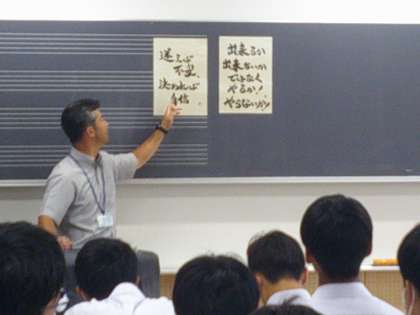 迷えば
不安、
決めれば
自信。
出来るか
出来ないか
ではなく
やるか!
やらないか!!